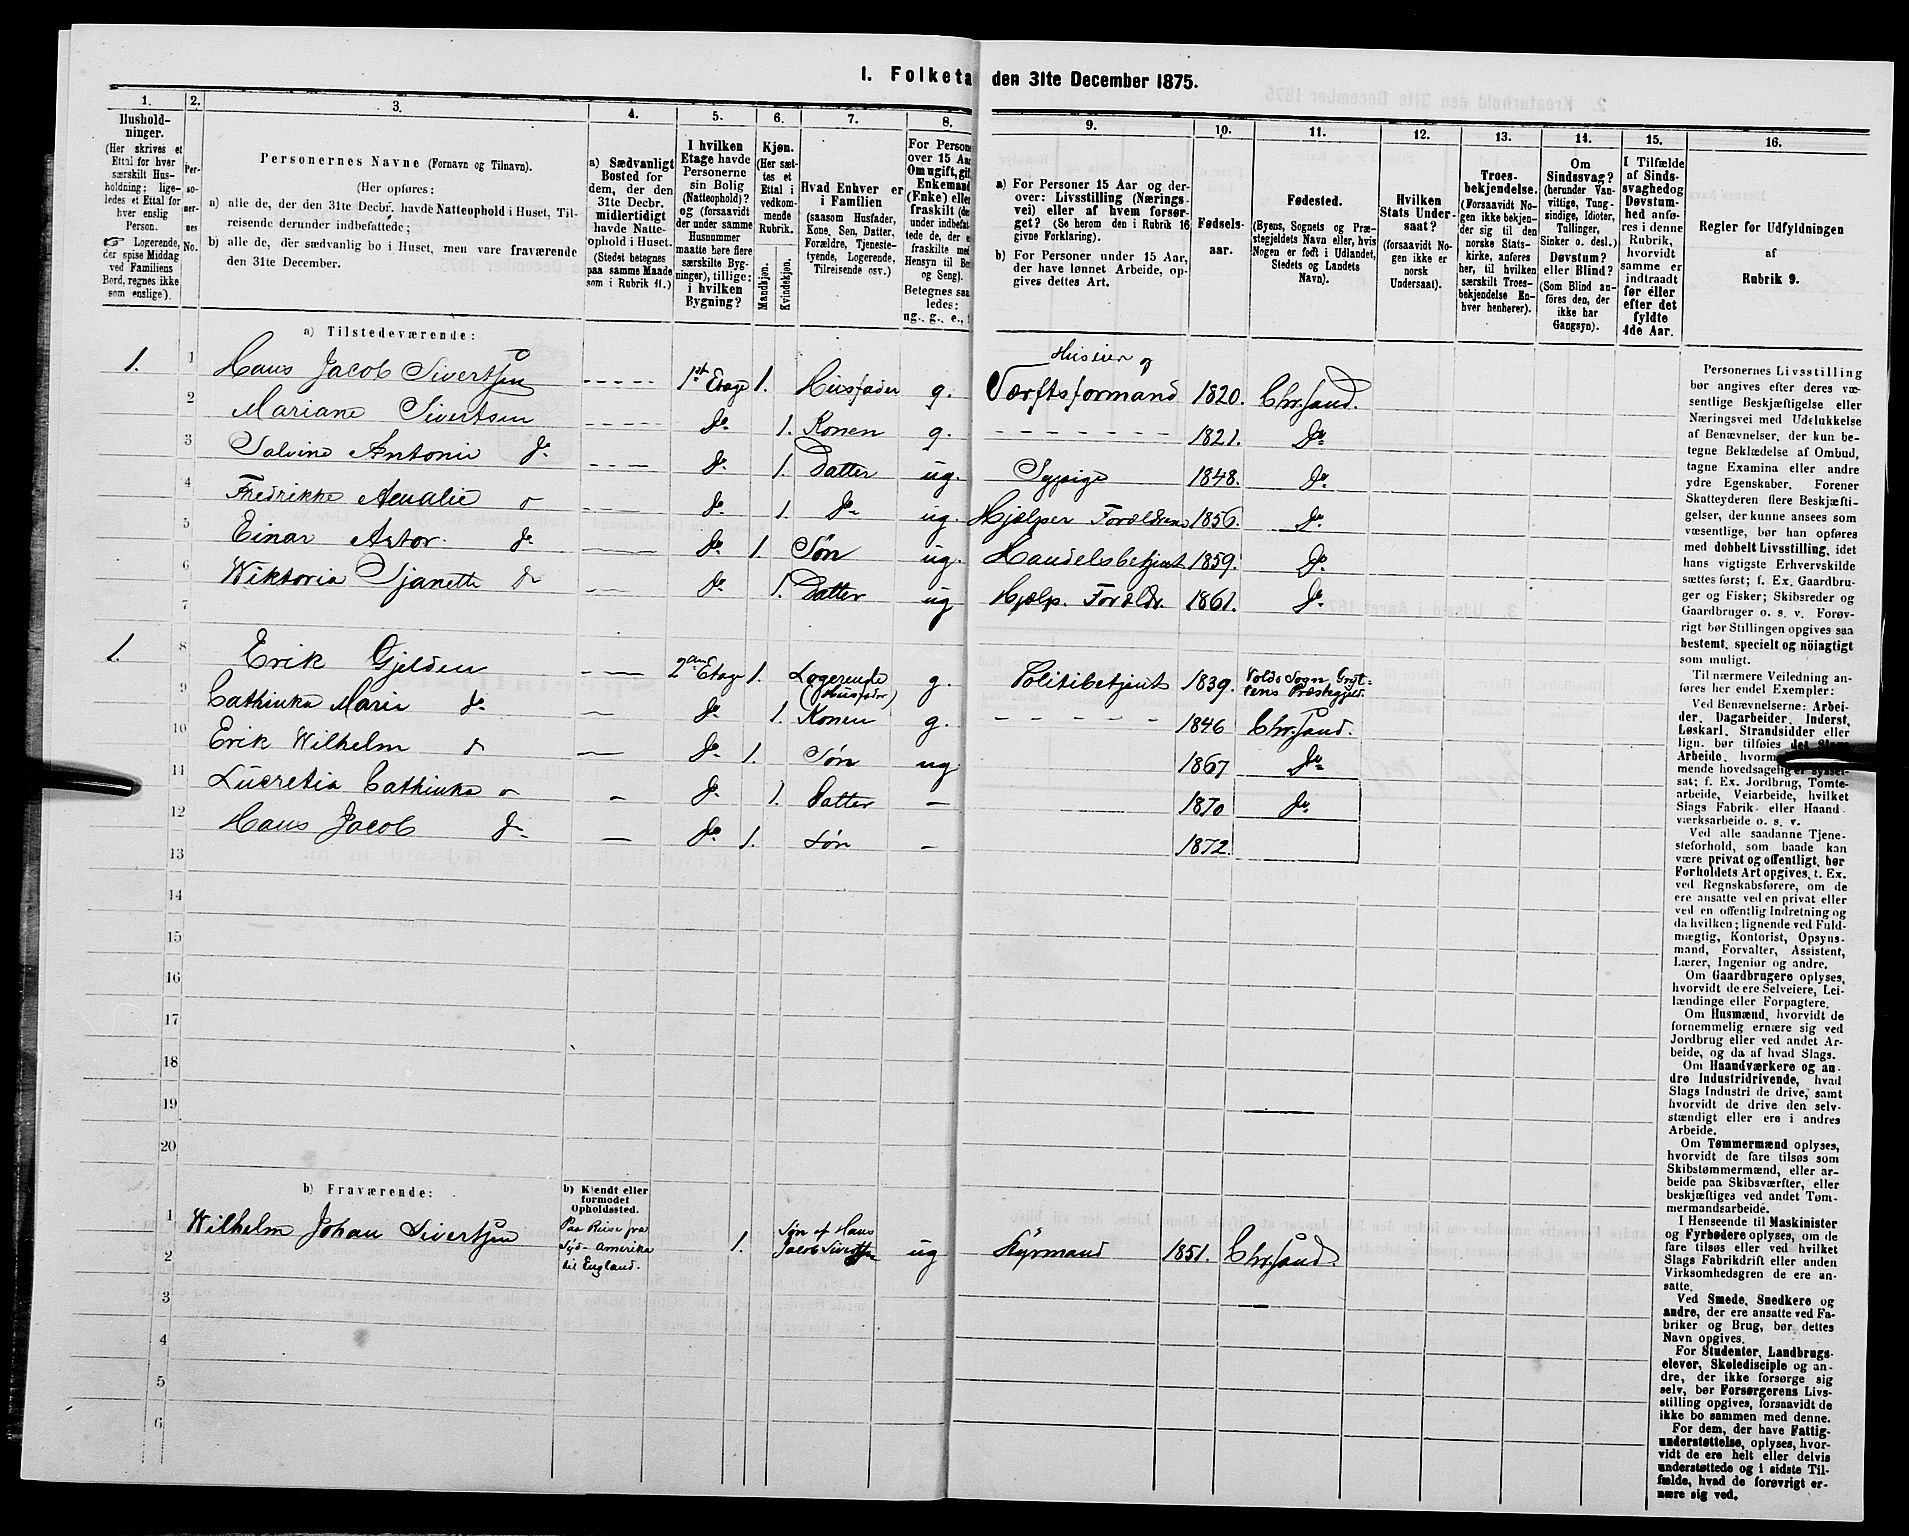 1. Folketa den 31te December 1875.
1. 2. 3. 4. 5. 6. 7. 8. 9. 10. 11. 12. 13. 14. 15. 16.
Hushold-
ninger.
(Her skrives et
Ettal for hver
særskilt Hus-
holdning; lige-
ledes et Ettal for
hver enslig
Person.
☞ Logerende,
der spise Middag
ved Familiens
Bord, regnes ikke
som enslige).
Per-
so-
ner-
nes
No.
Personernes Navne (Fornavn og Tilnavn).
(Her opføres:
a) alle de, der den 31te Decbr. havde Natteophold i Huset, Til-
reisende derunder indbefattede;
b) alle de, der sædvanlig bo i Huset, men vare fraværende
den 31te December.
a) Sædvanligt
Bosted for
dem, der den
31te Decbr.
midlertidigt
havde Natte-
ophold i Huset.
(Stedet betegnes
paa samme Maade
som i Rubrik 11.)
I hvilken
Etage havde
Personerne
sin Bolig
(Natteophold)?
og (forsaavidt
der under samme
Husnummer
maatte høre flere
særskilte Byg-
ninger), tillige:
i hvilken
Bygning?
Kjøn.
(Her sæt-
tes et
Ettal i
vedkom-
mende
Rubrik.)
Mandkjøn.
Kvindekjøn.
Hvad Enhver er
i Familien
(saasom Husfader,
Kone, Søn, Datter,
Forældre, Tjeneste-
tyende, Logerende,
Tilreisende osv.)
For Person
over 15 Aa
Om ugift, gif
Enkemand
(Enke) elle
fraskilt (de
under indbefat
tede de, der e
fraskilte med
Hensyn til Bo
og Seng).
Betegnes saa
ledes:
ug., g., e., f
a) For Personer 15 Aar og der-
over: Livsstilling (Nærings-
vei) eller af hvem forsør-
get? (Se herom den i Rubrik 16
givne Forklaring).
b) For Personer under 15 Aar,
der have lønnet Arbeide, op-
gives dettes Art.
Fødsels-
aar.
Fødested.
(Byens, Sognets og Præ-
stegjeldets Navn eller, hvis
Nogen er født i Udlandet,
Stedets og Landets
Navn).
Hvilken
Stats Under-
saat?
(forsaavidt No-
gen ikke er
norsk
Undersaat).
Troes-
bekjendelse.
(Forsaavidt No-
gen ikke bekjen-
der sig til den
norske Stats-
kirke, anføres
her, til hvilken
særskilt Troes-
bekjendelse En-
hver henhører).
Om
Sindssvag?
(herunder Van-
vittige, Tung-
sindige, Idioter,
Tullinger,
Sinker o. desl.)
Døvstum?
eller Blind?
(Som Blind an-
føres den, der
ikke har
Gangsyn).
I Tilfælde
af Sinds-
svaghed og
Døvstum-
hed anfø-
res i denne
Rubrik,
hvorvidt
samme er
indtraadt
før eller
efter det
fyldte
4de Aar.
Regler for Udfyldningen
af
Rubrik 9.
a) Tilstedeværende:
1. 1 Hans Jacob Sivertsen 1st Etage 1. Husfader g. Huseier og Værftsformand 1820. Chr.sand.
2 Mariane Sivertsen do 1. Konen g. 1821. Do
3 Salvine Antonie do do 1. Datter ug. Sypige 1848. Do
4 Fredrikke Amalie do 1. do ug. Hjælper Forældrene 1856. Do
5 Einar Astor. do do 1. Søn ug. Handelsbetjent 1859. Do
6 Wiktoria Sjanette do do 1. Datter ug Hjælp. Forældr. 1861. Do
7
1. 8 Erik Gjelden 2den Etage 1. Logerende (Husfader) g. Politibetjent 1839. Volds Sogn Gryt-
tens Præstegjeld.
9 Cathinka Marie do do 1. Konen g. 1846 Chr.sand.
10 Erik Wilhelm do do 1. Søn ug 1867 Do
11 Lucretia Cathinka do 1. Datter 1870 do
12 Hans Jacob do do 1. Søn 1872.
13
14
15
16
17
18
19
20
b) Fraværende:
b) Kjendt eller
formodet
Opholdssted.
1 Wilhelm Johan Sivertsen Paa Reise fra
Syd-Amerika
til England. 1. Søn af Hans
Jacob Sivertsen ug Styrmand 1851. Chr.sand
2
3
4
5
6
Personernes Livsstilling
bør angives efter deres væ-
sentlige Beskjæftigelse eller
Næringsvei med Udelukkelse
af Benævnelser, der kun be-
tegne Beklædelse af Ombud,
tagne Examina eller andre
ydre Egenskaber. Forener
Skatteyderen flere Beskjæfti-
gelser, der kunne ansees som
væsentlige, bør han opføres
med dobbelt Livsstilling, idet
hans vigtigste Erhvervskilde
sættes først; f. Ex. Gaardbru-
ger og Fisker; Skibsreder og
Gaardbruger o. s. v. Forøv-
rigt bør Stillingen opgives saa
bestemt, specielt og nøiagtigt
som muligt.
Til nærmere Veiledning an-
føres her endel Exempler:
Ved Benævnelserne: Arbei-
der, Dagarbeider, Inderst,
Løskarl, Strandsidder eller
lign. bør tilføies det Slags
Arbeide, hvorm
mende hovedsagelig er syssel-
sat; f. Ex. Jordbrug, Tomte-
arbeide, Veiarbeide, hvilket
Slags Fabrik- eller Haand-
værksarbeide o. s. v.
Ved alle saadanne Tjene-
steforhold, som baade kan
være privat og offentligt, bør
Forholdets Art opgives, t. Ex.
ved Regnskabsførere, om de
ere ansatte ved en privat eller
ved en offentlig Indretning og
da hvilken; lignende ved Fuld-
mægtig, Kontorist, Opsyns-
mand, Forvalter, Assistent,
Lærer, Ingeniør og andre.
Om Gaardbrugere oplyses,
hvorvidt de ere Selveiere, Lei-
lændinge eller Forpagtere.
Om Husmænd, hvorvidt de
fornemmelig ernære sig ved
Jordbrug eller ved andet Ar-
beide, og da af hvad Slags.
Om Haandværkere og an-
dre Industridrivende, hvad
Slags Industri de drive, samt
hvorvidt de drive den selv-
stændigt eller ere i andres
Arbeide.
Om Tømmermænd oplyses,
hvorvidt de fare tilsøs som
Skibstømmermænd, eller ar-
beide paa Skibsværfter, eller
beskjæftiges ved andet Tøm-
mermandsarbeide.
I Henseende til Maskinister
og Fyrbødere oplyses, om de
fare tilsøs eller ved hvilket
Slags Fabrikdrift eller anden
Virksomhedsgren de ere an-
satte.
Ved Smede, Snedkere og
andre, der ere ansatte ved Fa-
briker og Brug, bør dettes
Navn opgives.
For Studenter, Landbrugs-
elever, Skoledisciple og an-
dre, der ikke forsørge sig
selv, bør Forsørgerens Livs-
stilling opgives, forsaavidt de
ikke bo sammen med denne.
For dem, der have Fattig-
understøttelse, oplyses, hvor-
vidt de ere helt eller delvis
understøttede og i sidste Til-
fælde, hvad de forøvrigt er-
nære sig ved.